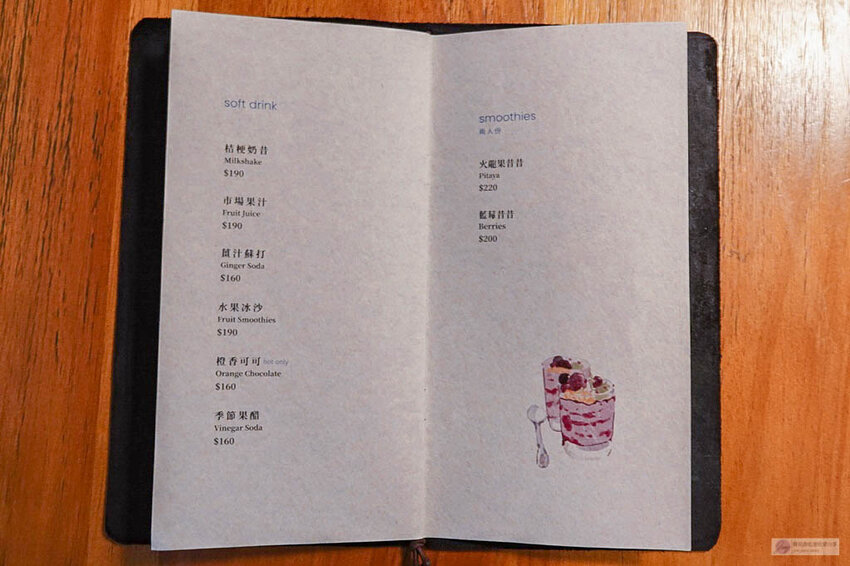 soft drink
桔梗奶昔
Milkshake
$190
市場果汁
Fruit Juice
$190
薑汁蘇打
Ginger Soda
$160
水果冰沙
Fruit Smoothies
$190
橙香可可 hot only
Orange Chocolate
$160
季節果醋
Vinegar Soda
$160
smoothies
兩人份
火龍果昔昔
Pitaya
$220
藍莓昔昔
Berries
$200